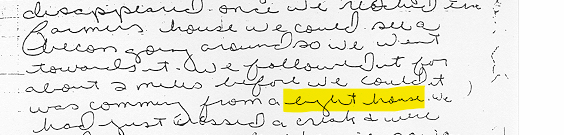 disappeared once we reached the
farmers house we could see a
Becon going around so we went
towards it. We followed it for
about 2 miles before we could it
was comming from a light house. We
had just crossed a creak & were